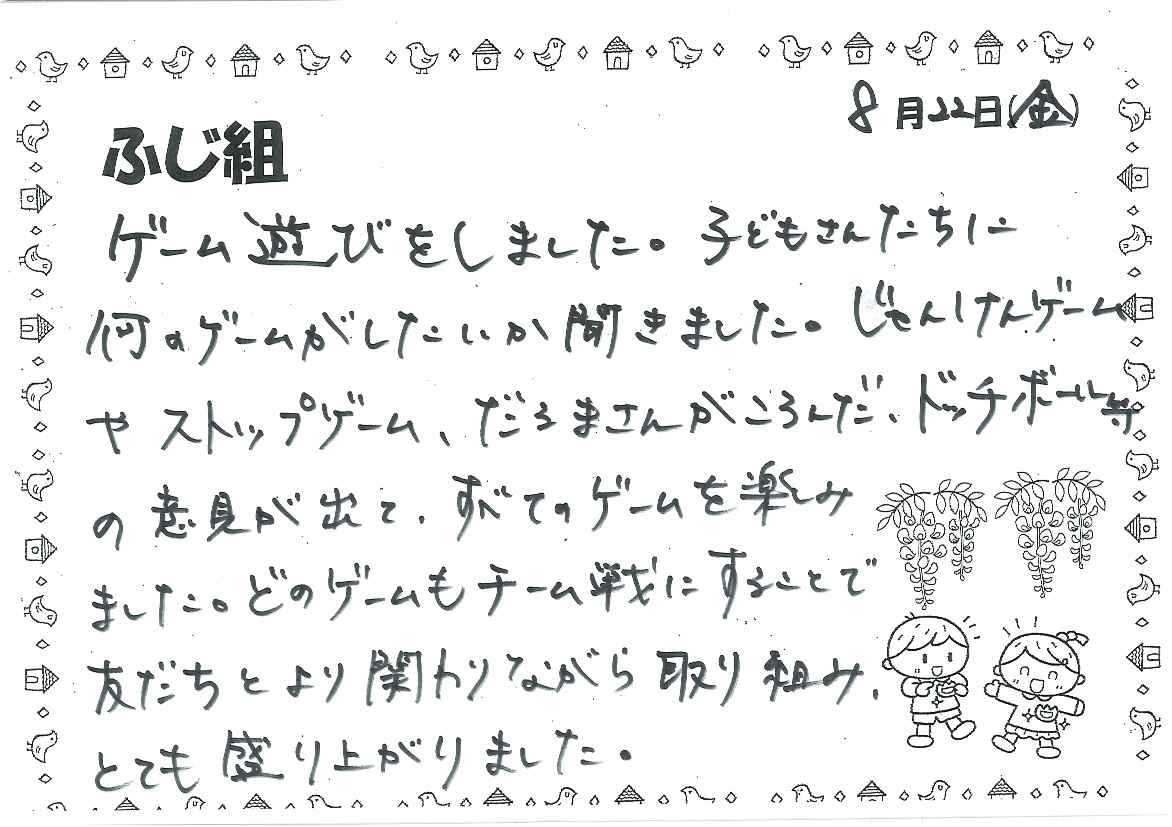 8月22日(金)
ふじ組
ゲーム遊びをしました。子どもさんたちに
何のゲームがしたいか聞きました。じゃんけんゲーム
やストップゲーム、だるまさんがころんだ、ドッチボール等
の意見が出て、すべてのゲームを楽しみ
ました。どのゲームもチーム戦にすることで
友だちとより関わりながら取り組み、
とても盛り上がりました。